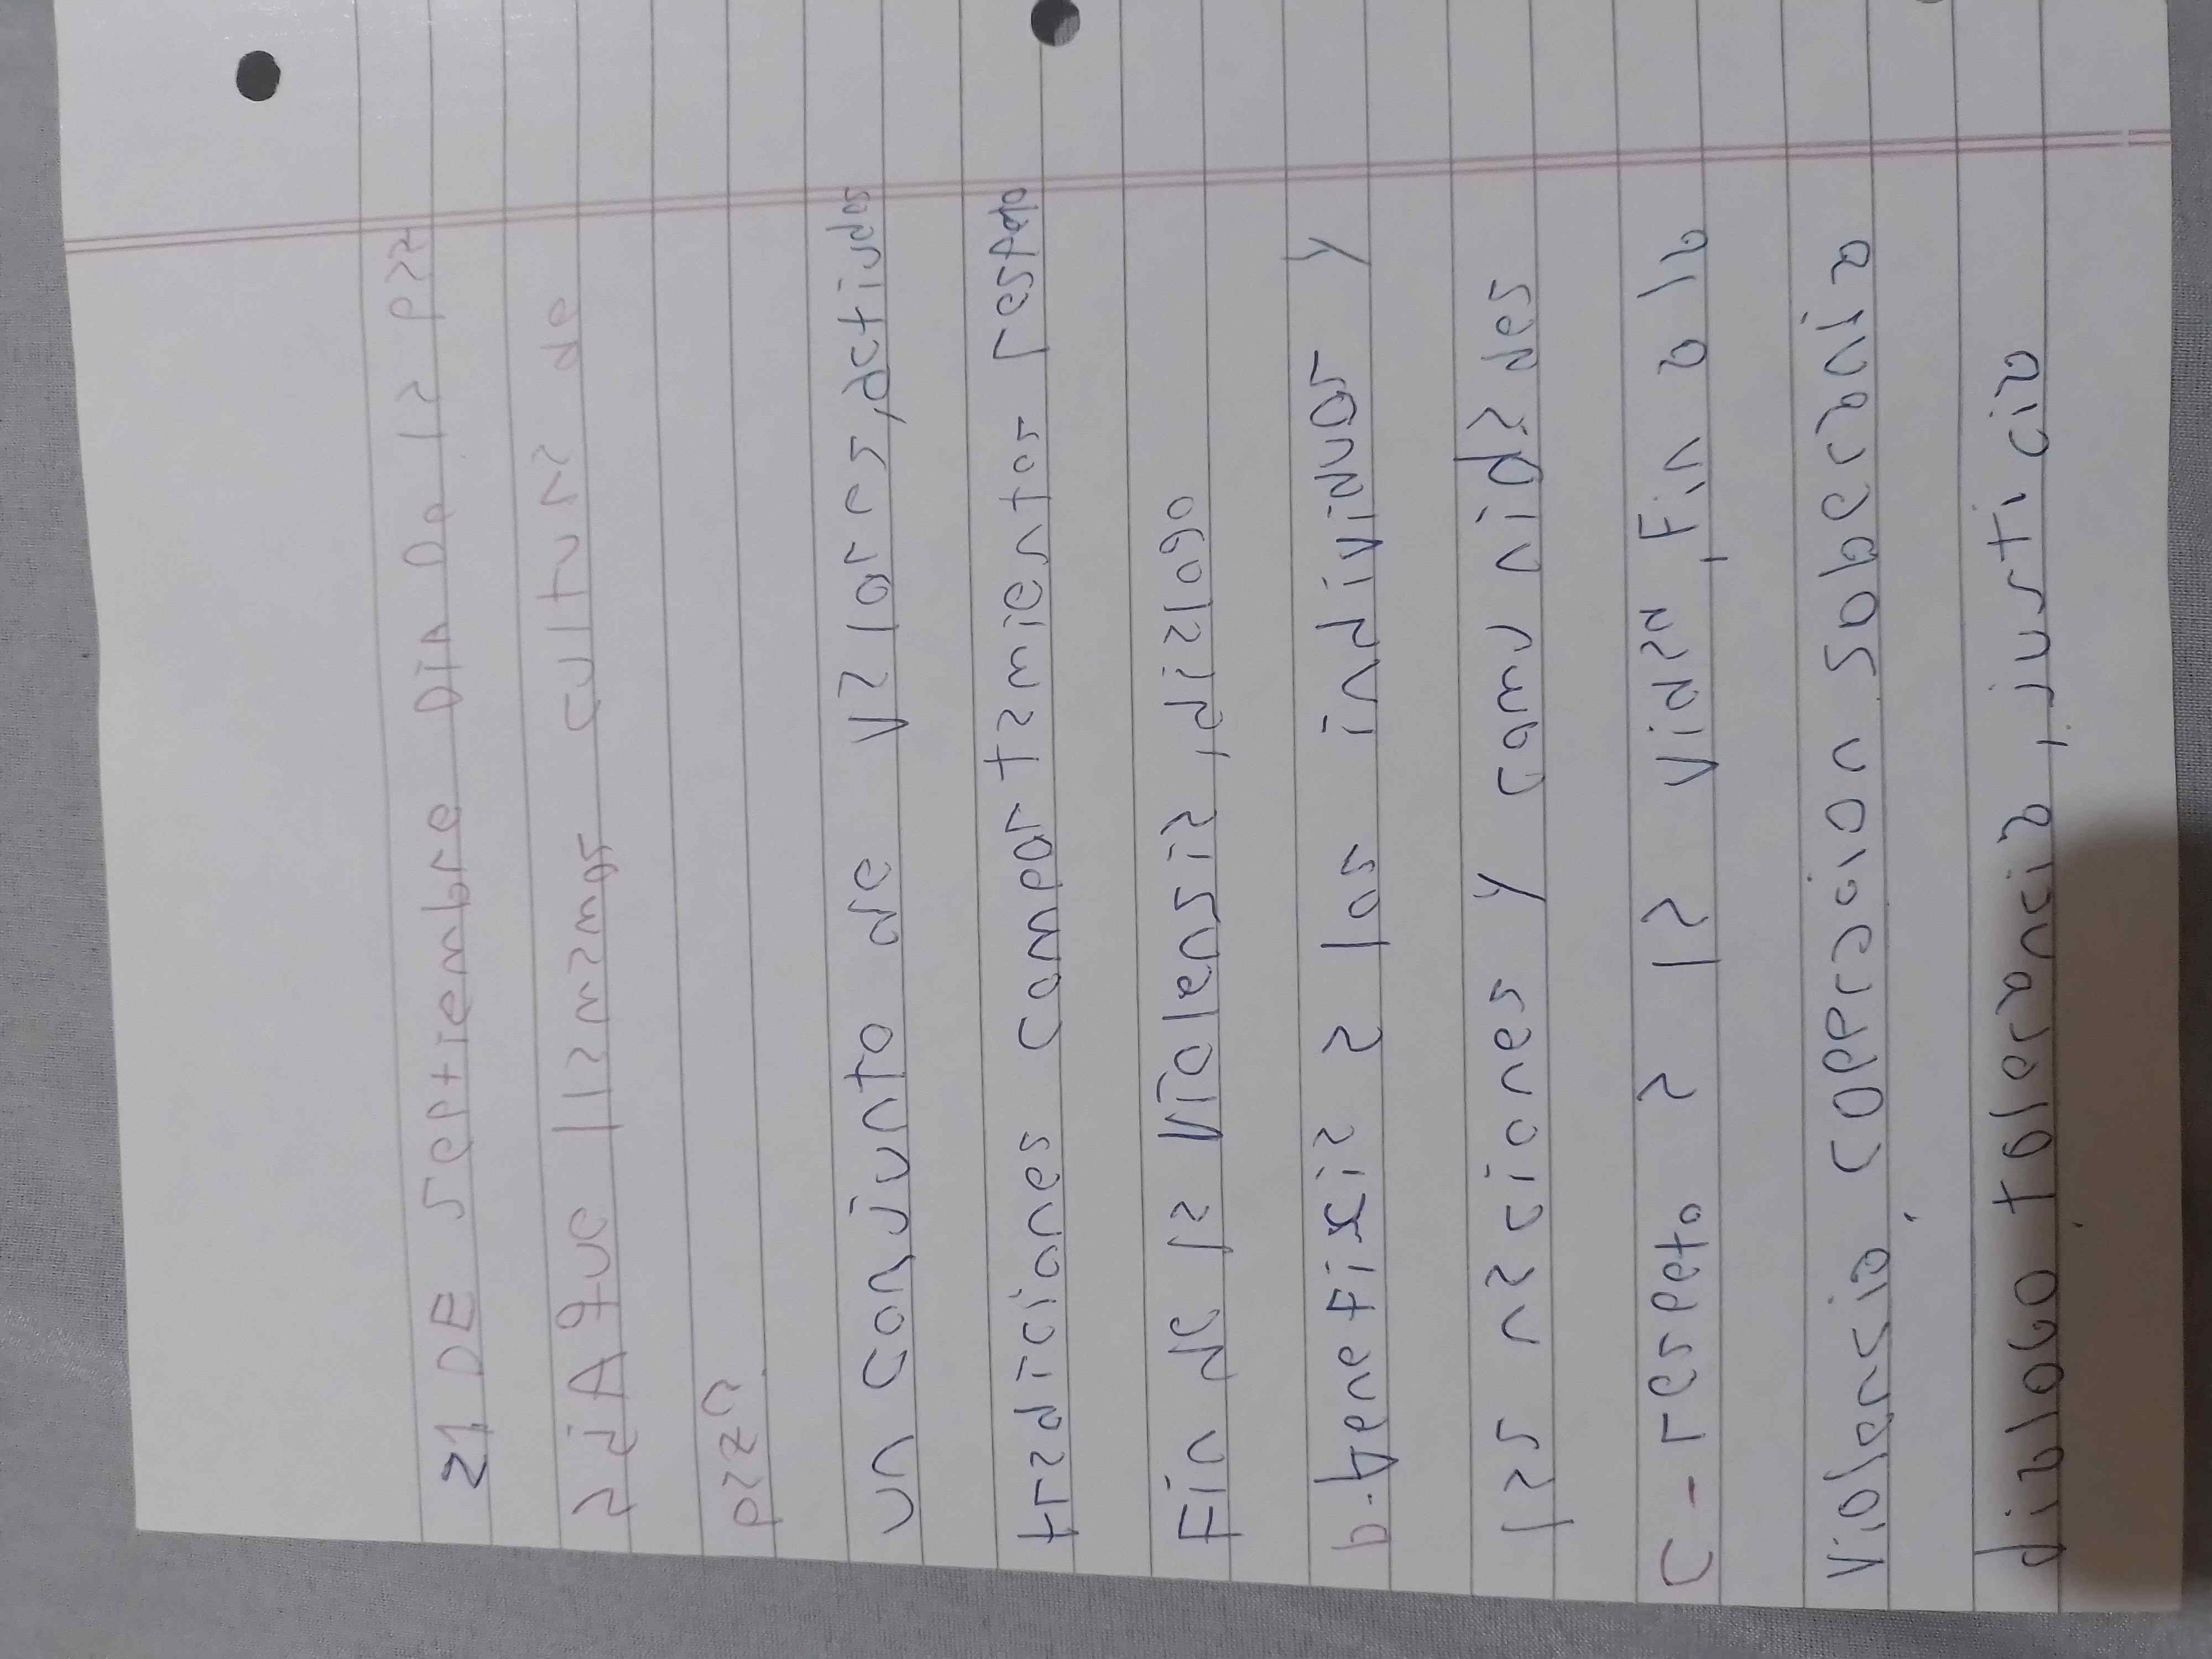 21 DE septiembre DIA De la paz
a díA que llamamos cultura de
paz?
un conjunto de valores, actitudes
tradiciones comportamientos respeto
Fin de la violensia, dialogo
b-benefisia a los individuos y
las naciones y comunidades
C-respeto a la vida, Fin a la
violensia, copperacion soberania
dialogo tolerancia, justicia